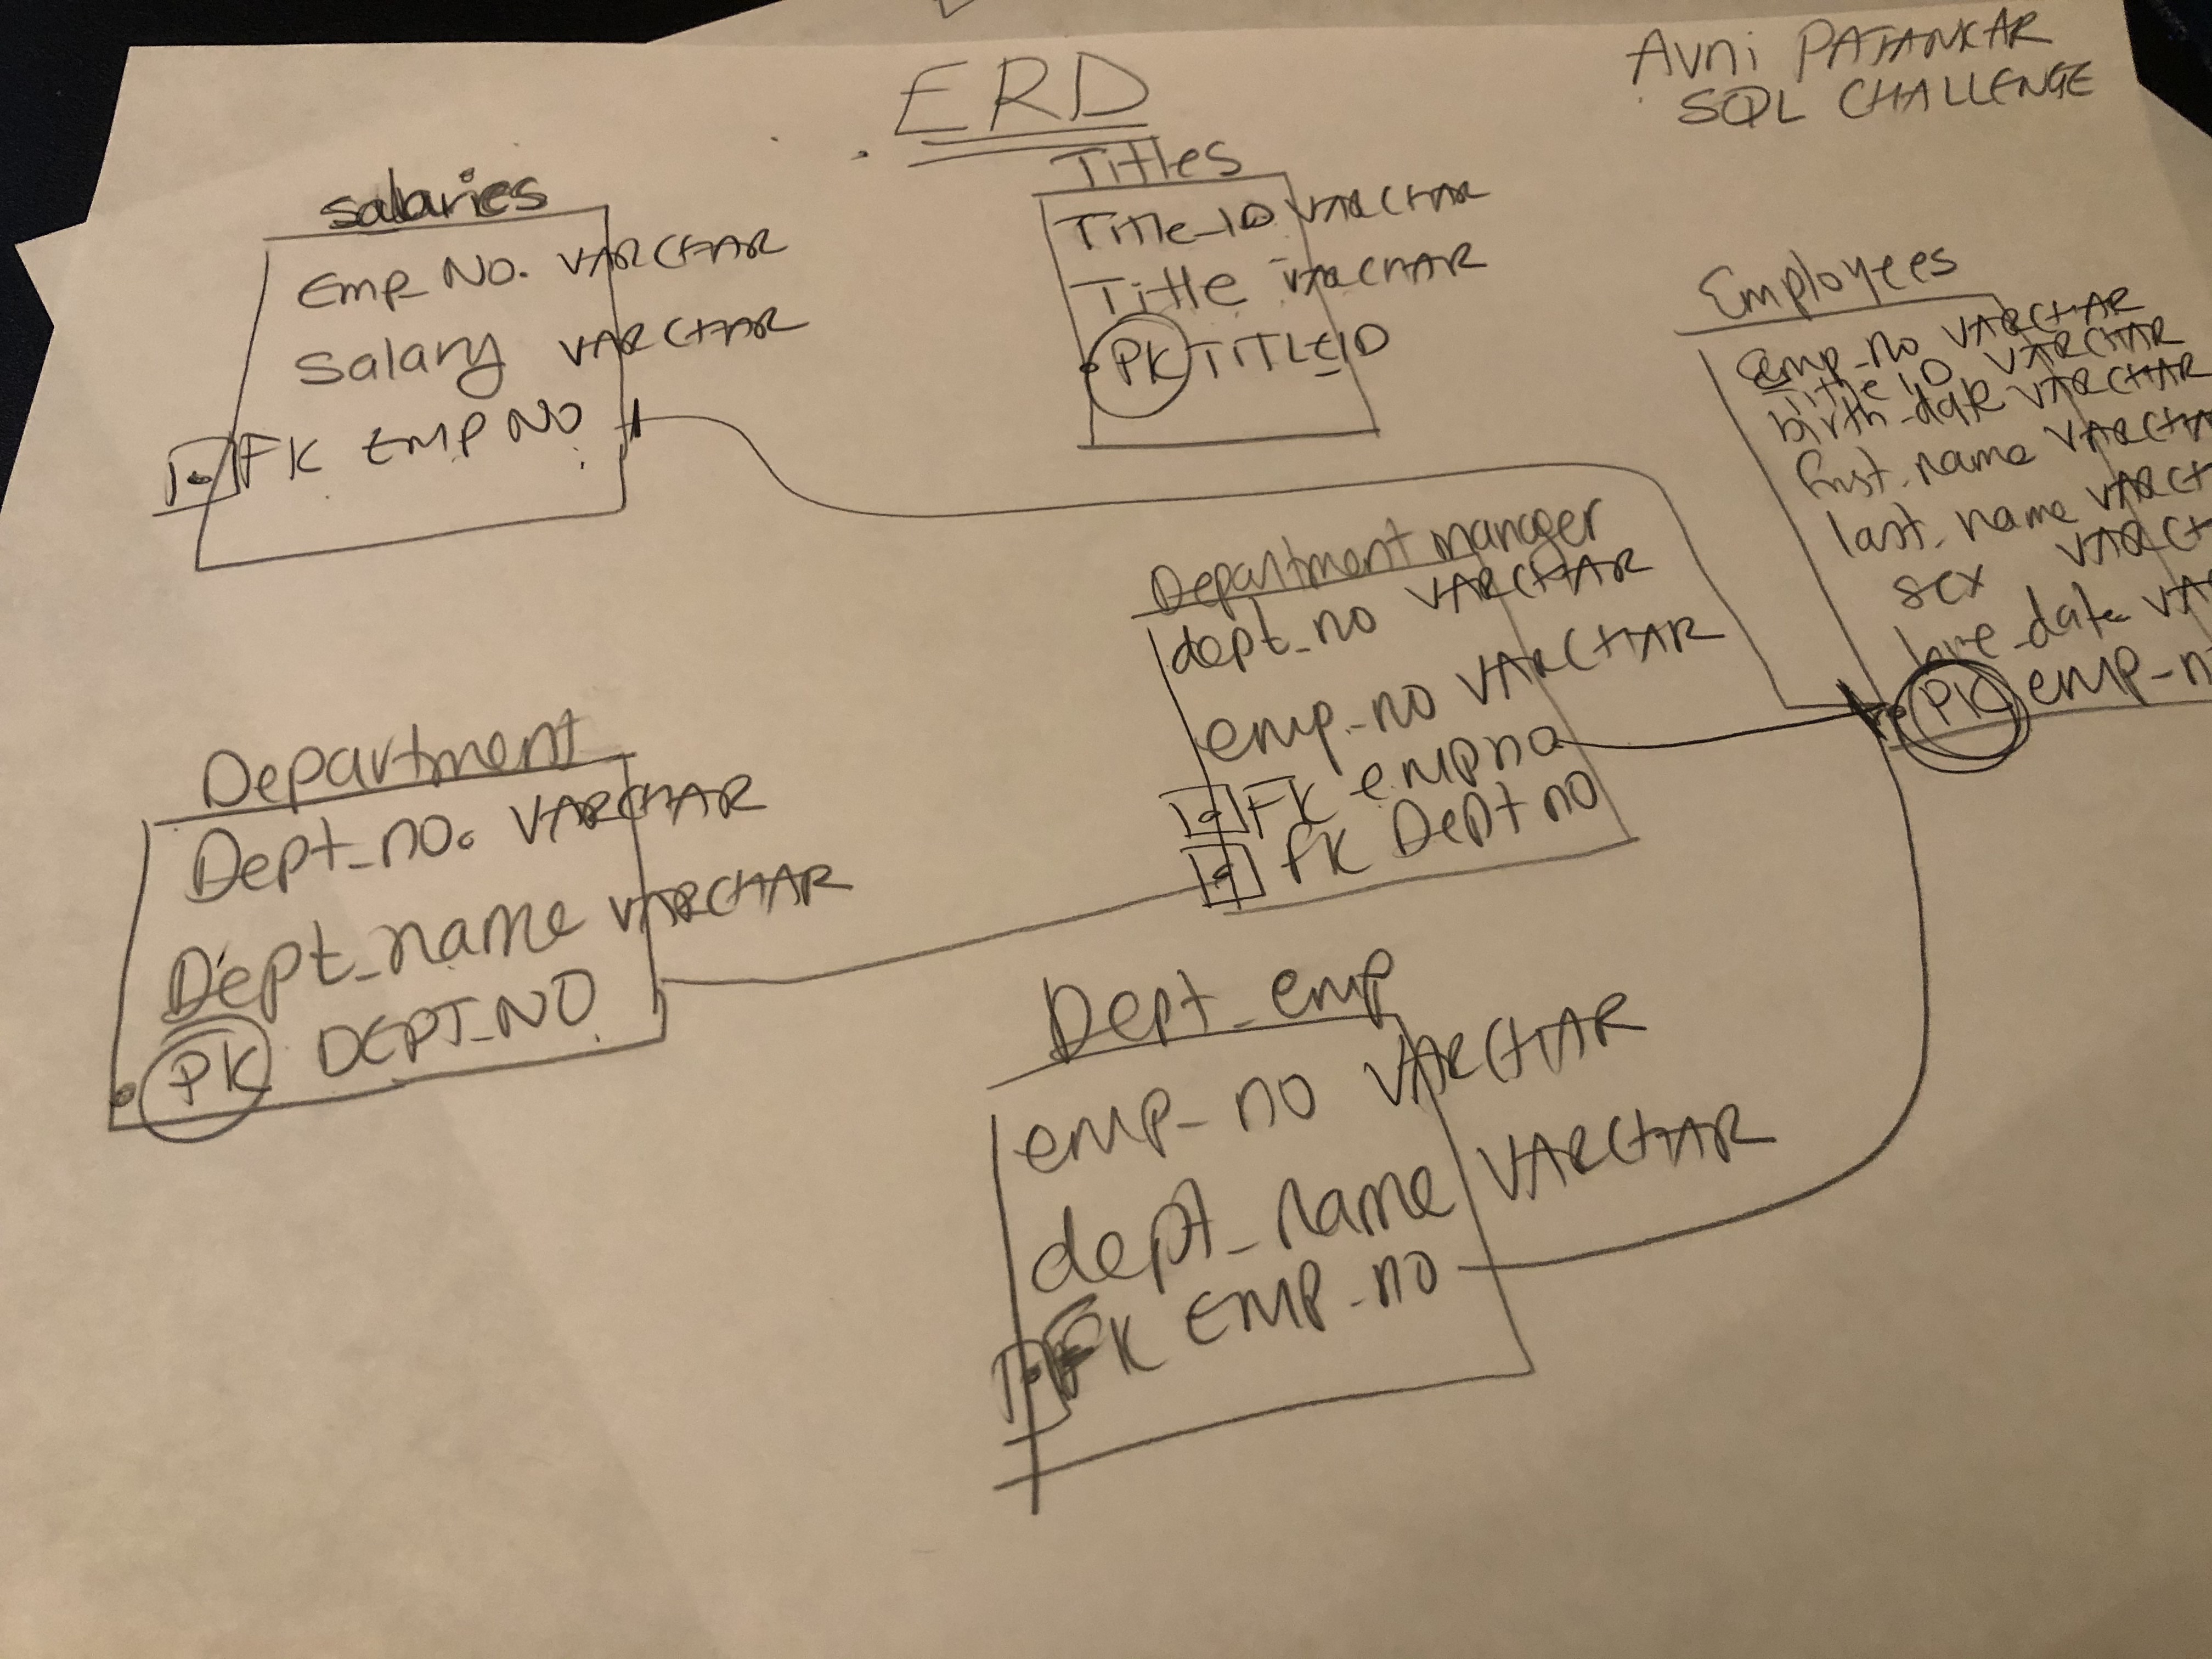 ERD
Avni PATANKAR
SQL CHALLENGE
Salaries
Emp No. VARCHAR
Salary VARCHAR
FK EMP NO
Titles
Title_ID VARCHAR
Title VARCHAR
PK TITLEID
Employees
emp_no VARCHAR
title ID VARCHAR
birth_date VARCHAR
first_name VARCHAR
last_name VARCH
sex VARCH
hire_date VAR
PK emp-n
Department manager
dept_no VARCHAR
emp_no VARCHAR
FK empno
FK Dept no
Department
Dept_no. VARCHAR
Dept_name VARCHAR
PK DEPT_NO
Dept_emp
emp_no VARCHAR
dept_name VARCHAR
FK EMP_no